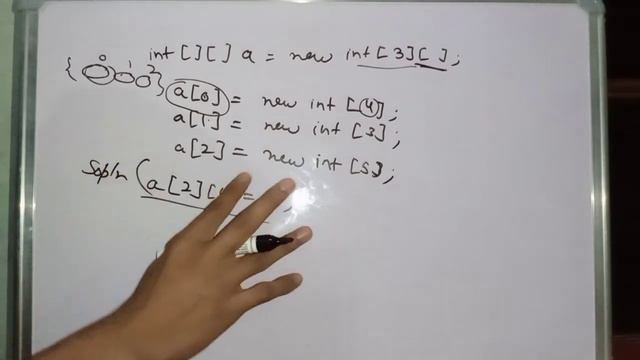 int [ ] [ ] a = new int [ 3 ] [ ] ;
{ 0 1 2 }
a[0] = new int [4] ;
a[1] = new int [3] ;
a[2] = new int [5] ;
a[2][ =